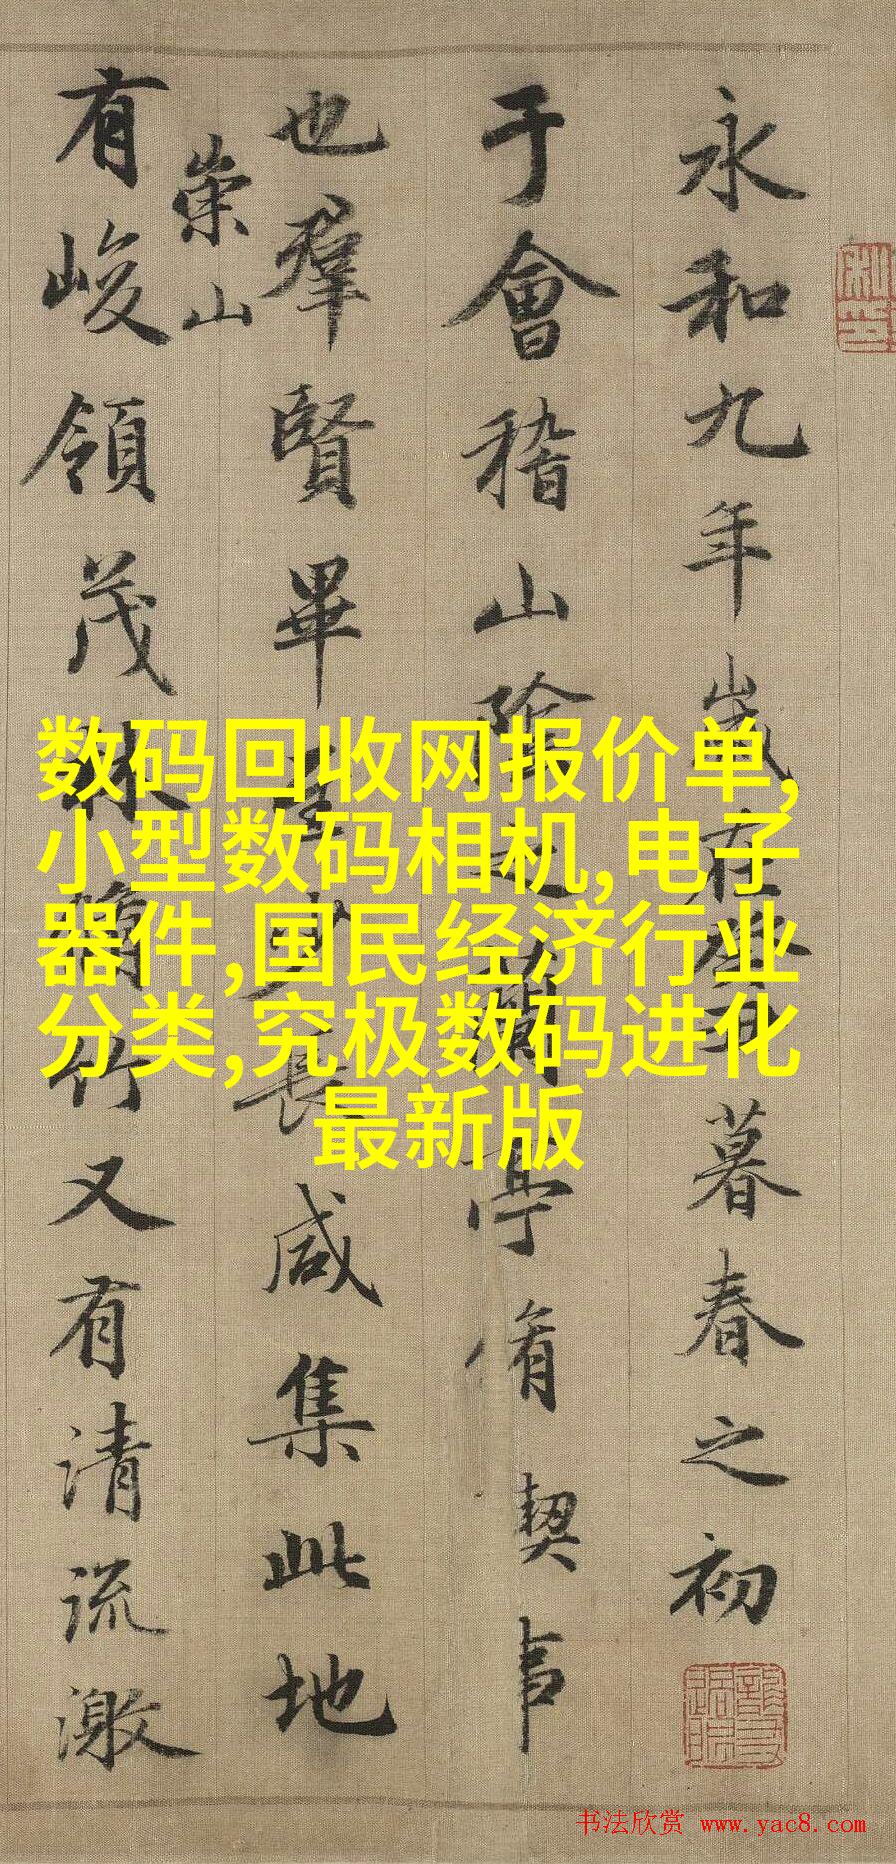 永和九年歲在癸丑暮春之初
于會稽山陰之蘭亭脩契事
也羣賢畢至少長咸集此地
崇山
有峻領茂林脩竹又有清流激
数码回收网报价单,
小型数码相机,电子
器件,国民经济行业
分类,究极数码进化
最新版
书法欣赏 www.yac8.com